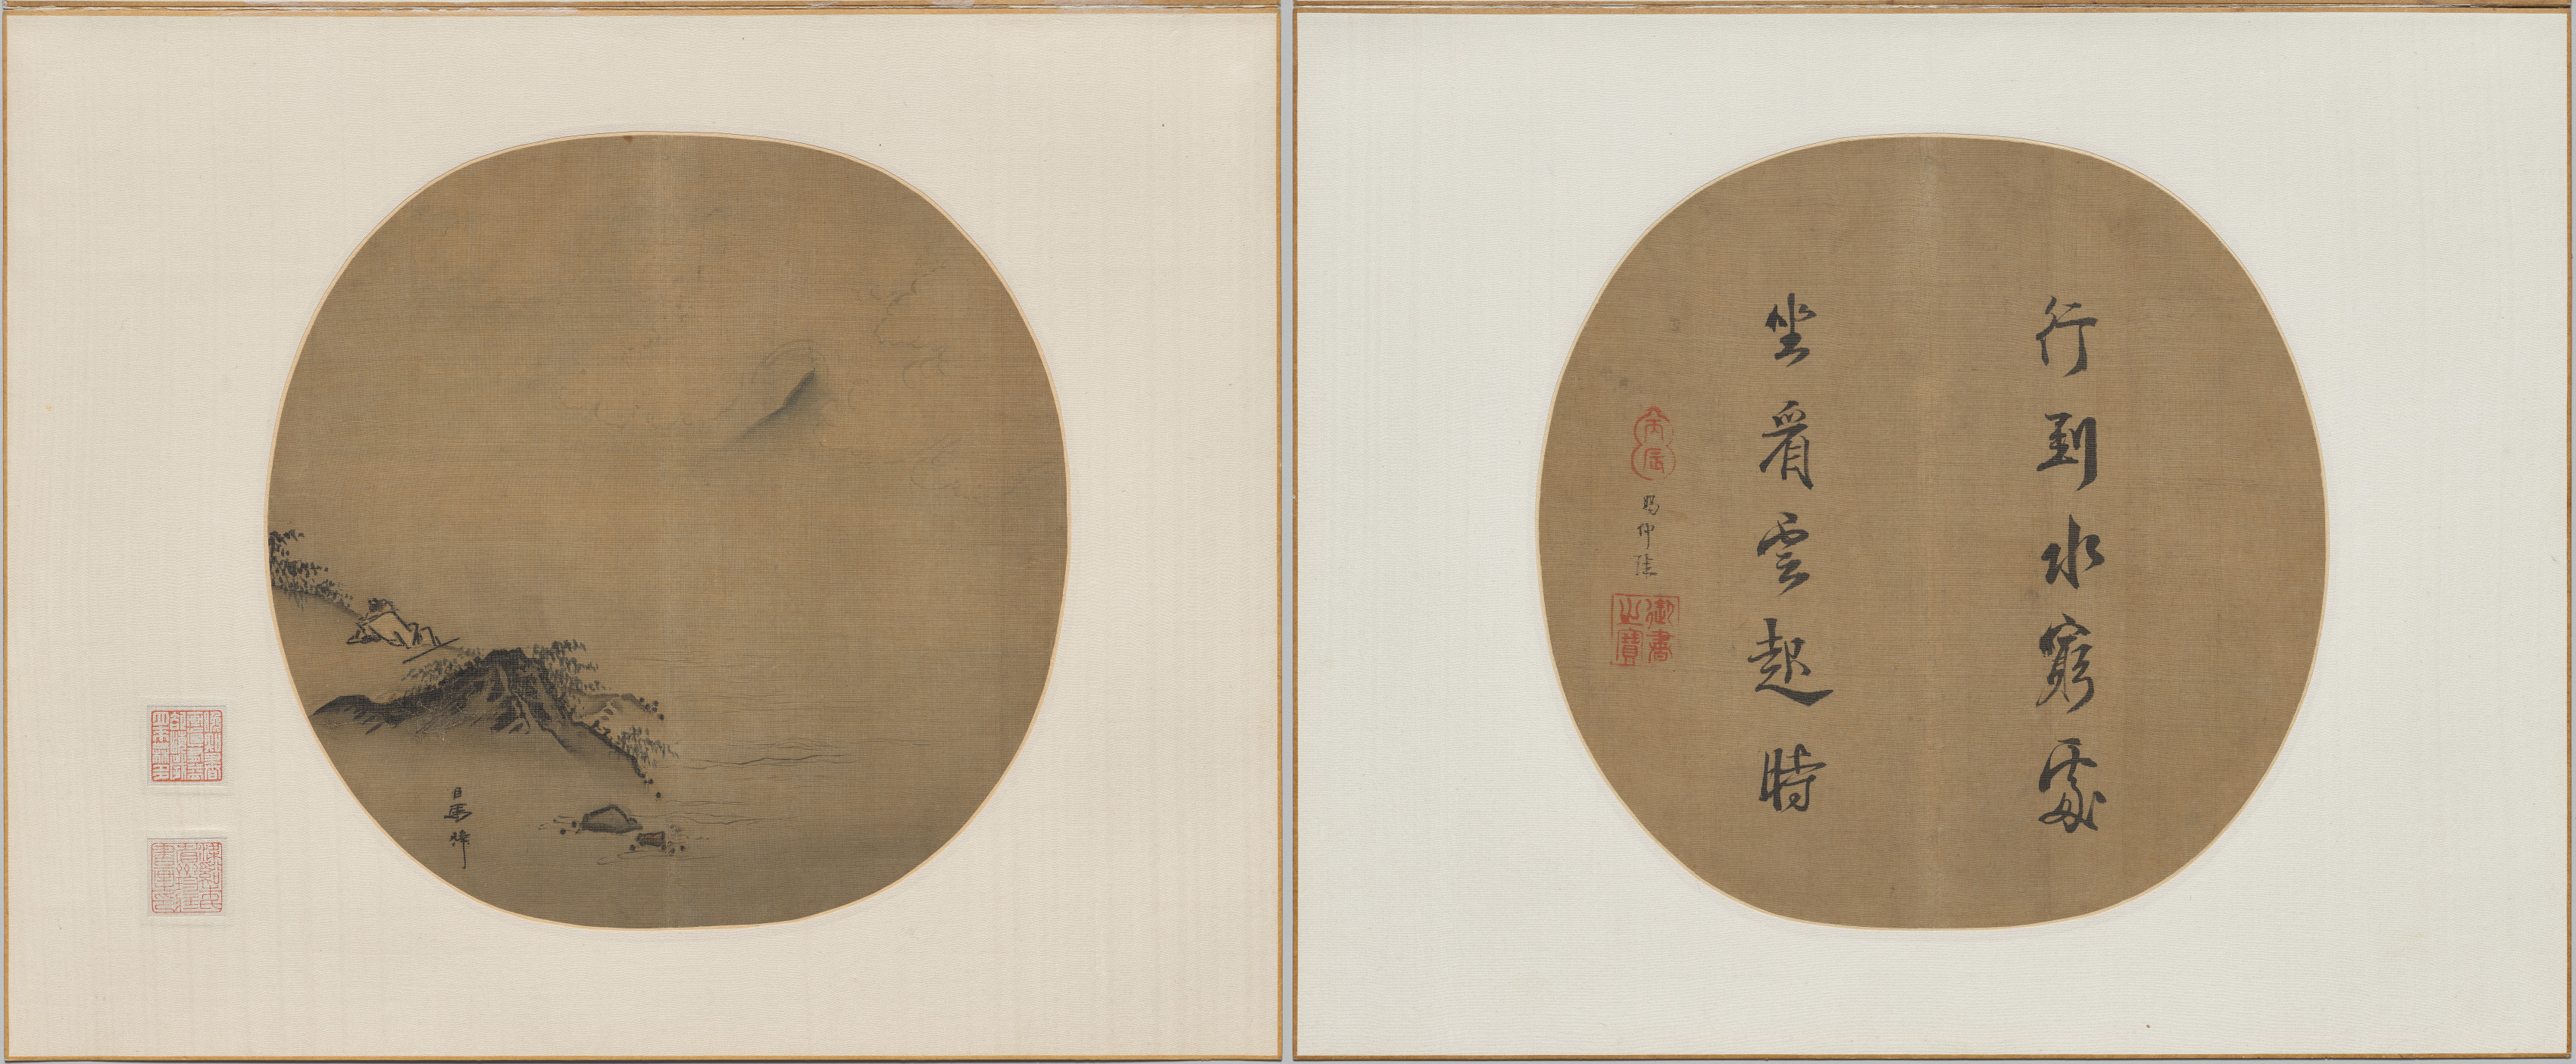 行到水窮處
坐看雲起時
丙辰
賜仲
御書之寶
臣馬